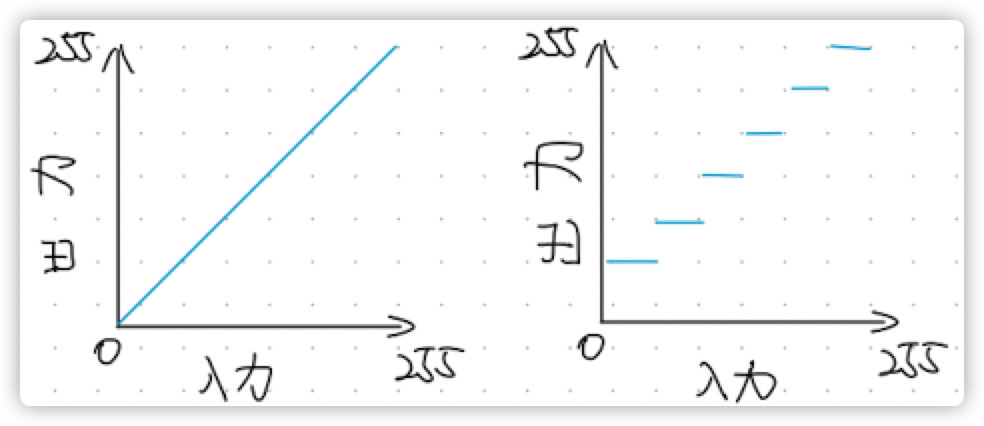 255
出力
0
入力
255
255
出力
0
入力
255